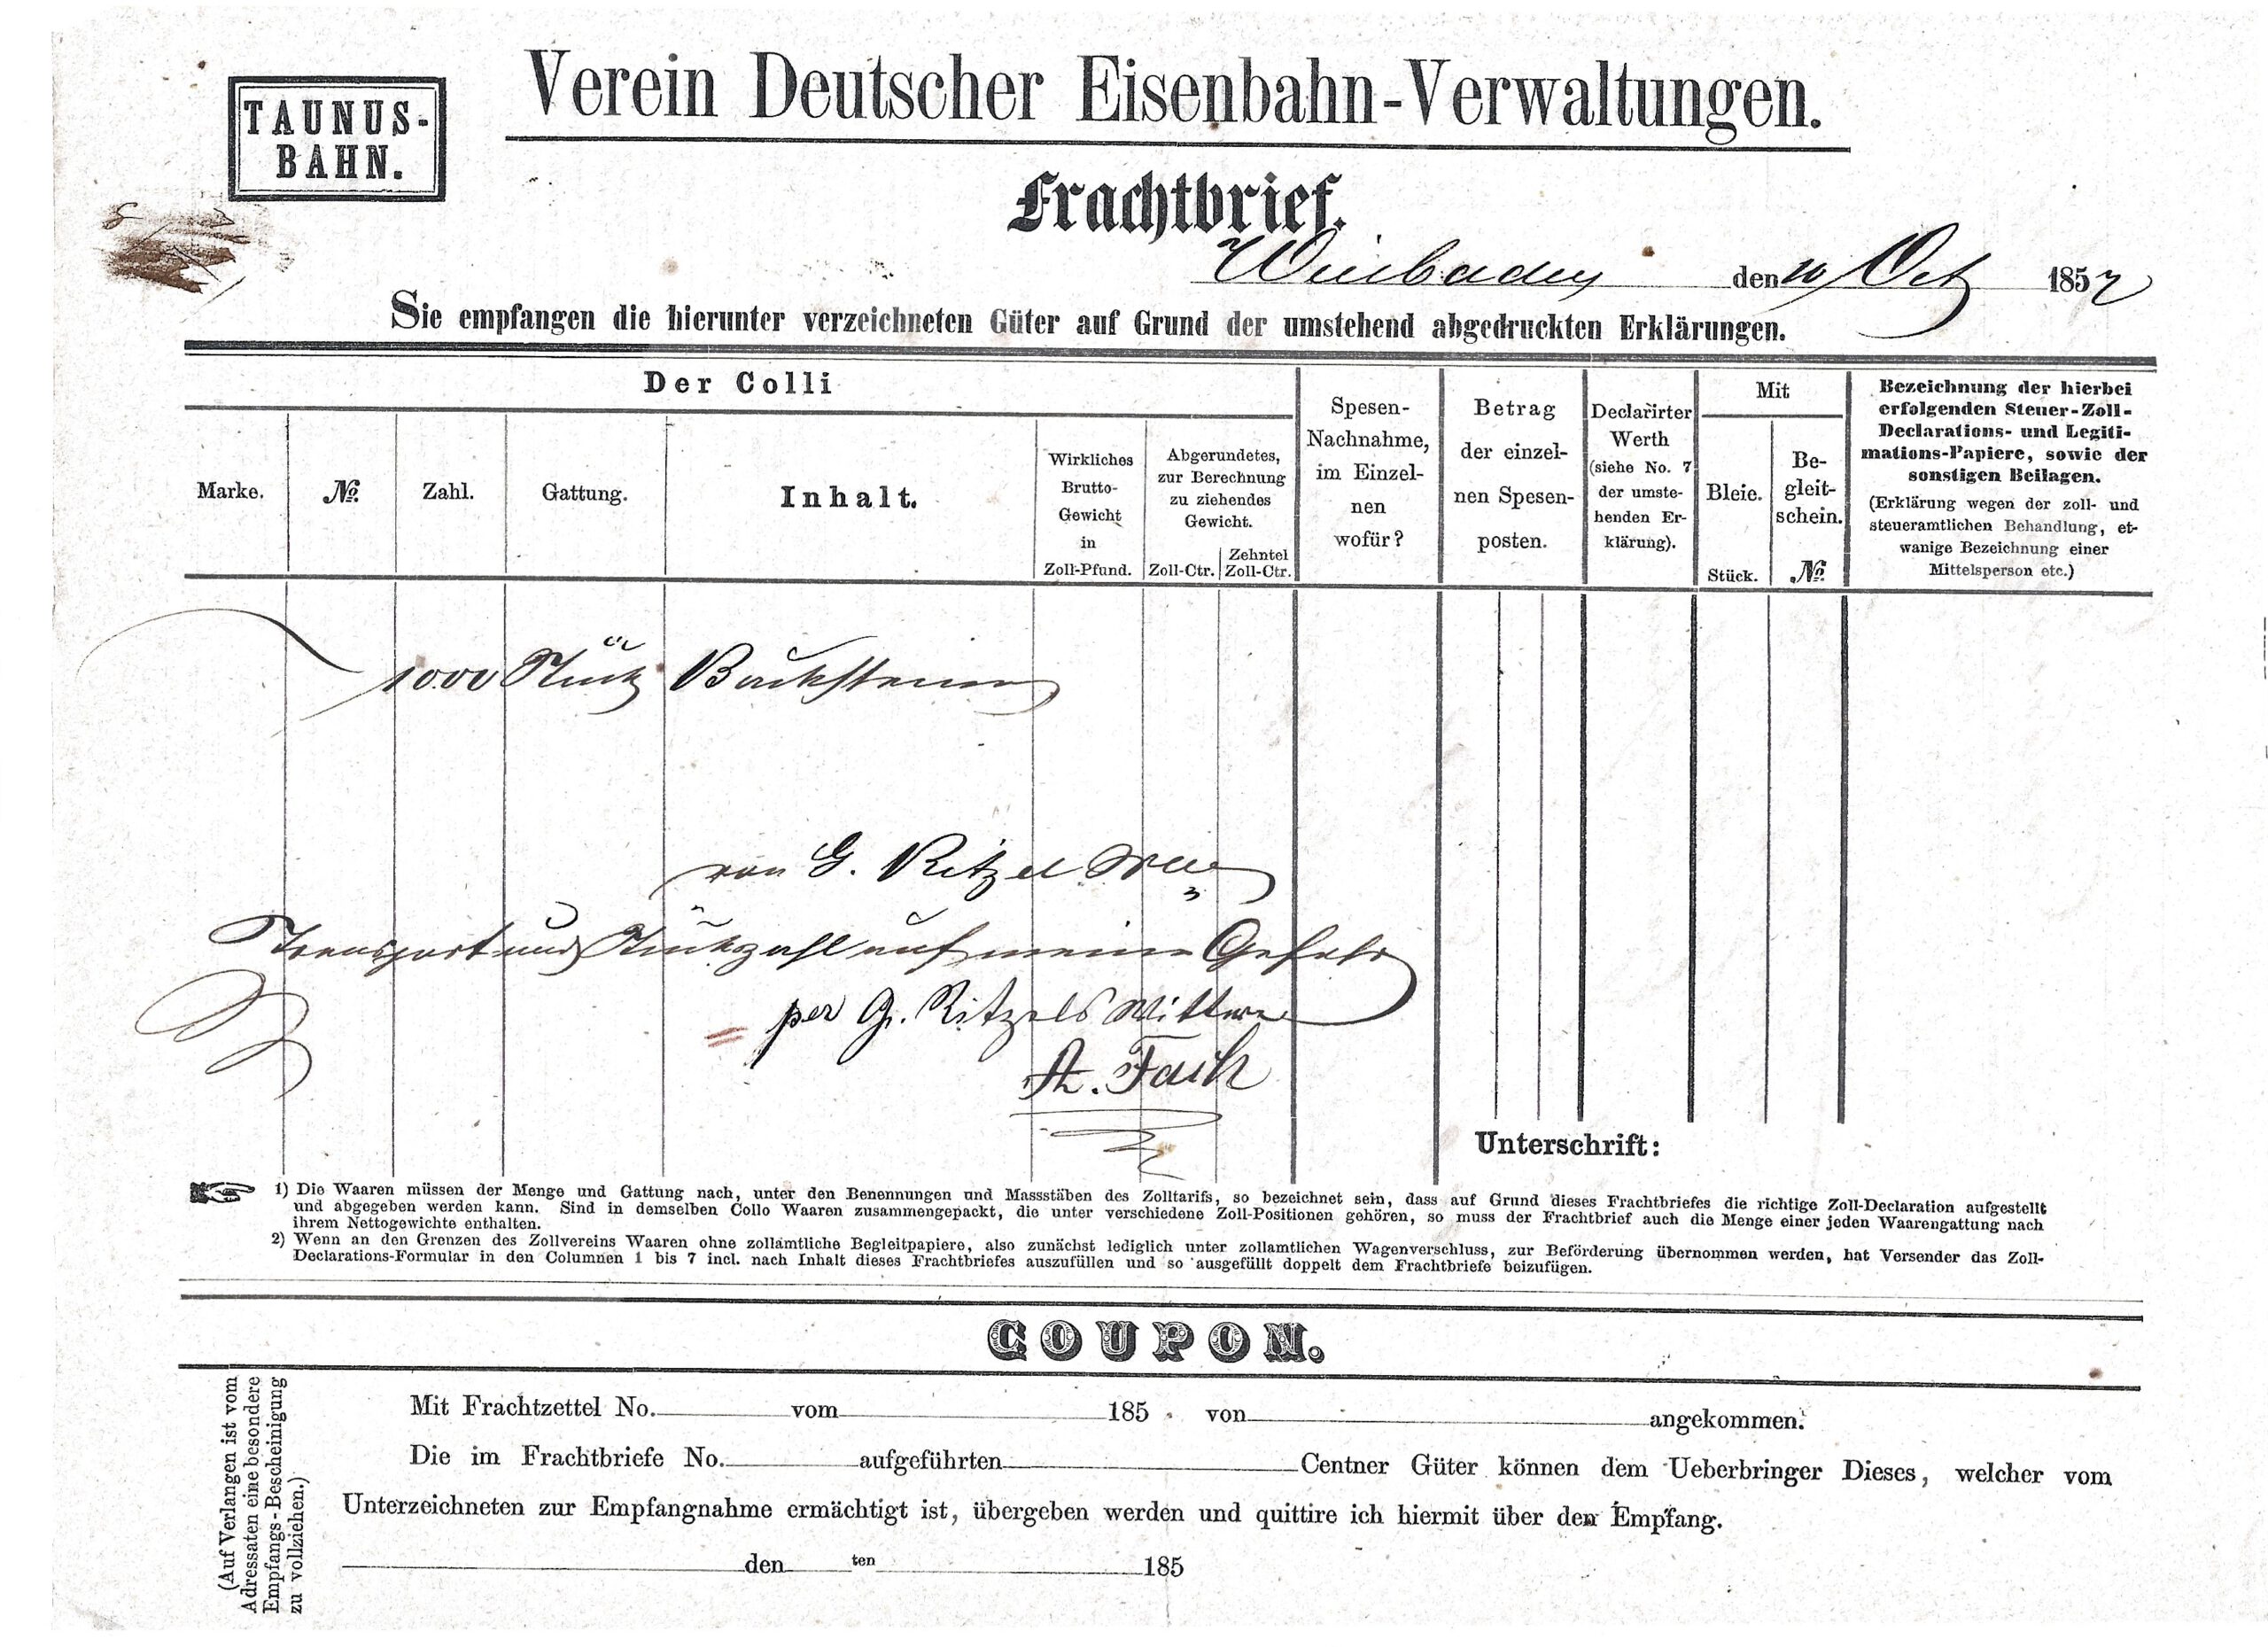 TAUNUS-
BAHN.
Verein Deutscher Eisenbahn-Verwaltungen.
Frachtbrief.
Wiesbaden den 10 Oct 1857
Sie empfangen die hierunter verzeichneten Güter auf Grund der umstehend abgedruckten Erklärungen.
Der Colli
Marke.
No.
Zahl.
Gattung.
Inhalt.
Wirkliches
Brutto-
Gewicht
in
Zoll-Pfund.
Abgerundetes,
zur Berechnung
zu ziehendes
Gewicht.
Zoll-Ctr.
Zehntel
Zoll-Ctr.
Spesen-
Nachnahme,
im Einzel-
nen
wofür?
Betrag
der einzel-
nen Spesen-
posten.
Declarirter
Werth
(siehe No. 7
der umste-
henden Er-
klärung).
Mit
Bleie.
Stück.
Be-
gleit-
schein.
No.
Bezeichnung der hierbei
erfolgenden Steuer-Zoll-
Declarations- und Legiti-
mations-Papiere, sowie der
sonstigen Beilagen.
(Erklärung wegen der zoll- und
steueramtlichen Behandlung, et-
wanige Bezeichnung einer
Mittelsperson etc.)
1000 Stück Backsteine
von G. Ritzel Wwe
Transport und Stückzahl auf meine Gefahr
per G. Ritzels Wittwe
A. Fach
Unterschrift:
1) Die Waaren müssen der Menge und Gattung nach, unter den Benennungen und Massstäben des Zolltarifs, so bezeichnet sein, dass auf Grund dieses Frachtbriefes die richtige Zoll-Declaration aufgestellt
und abgegeben werden kann. Sind in demselben Collo Waaren zusammengepackt, die unter verschiedene Zoll-Positionen gehören, so muss der Frachtbrief auch die Menge einer jeden Waarengattung nach
ihrem Nettogewichte enthalten.
2) Wenn an den Grenzen des Zollvereins Waaren ohne zollamtliche Begleitpapiere, also zunächst lediglich unter zollamtlichen Wagenverschluss, zur Beförderung übernommen werden, hat Versender das Zoll-
Declarations-Formular in den Columnen 1 bis 7 incl. nach Inhalt dieses Frachtbriefes auszufüllen und so ausgefüllt doppelt dem Frachtbriefe beizufügen.
COUPON.
(Auf Verlangen ist vom
Adressaten eine besondere
Empfangs-Bescheinigung
zu vollziehen.)
Mit Frachtzettel No. vom 185 . von angekommen.
Die im Frachtbriefe No. aufgeführten Centner Güter können dem Ueberbringer Dieses, welcher vom
Unterzeichneten zur Empfangnahme ermächtigt ist, übergeben werden und quittire ich hiermit über den Empfang.
den ten 185